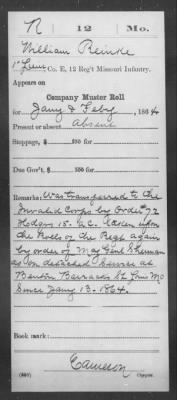 R | 12 | Mo.
William Reinke
1" Lieut, Co. E, 12 Reg't Missouri Infantry.
Appears on
Company Muster Roll
for Jany & Feby, 1864
Present or absent Absent
Stoppage, $ 100 for
Due Gov't, $ 100 for
Remarks: Was transferred to the
Invalid Corps by Order # 72
Hdqrs 15. A.C. taken upon
the Rolls of the Regt again
by order of Maj Genl Sherman
as on detached Service at
Benton Barracks St Louis Mo
Since Jany 13. 1864.
Book mark:
Cameron
Copyist.